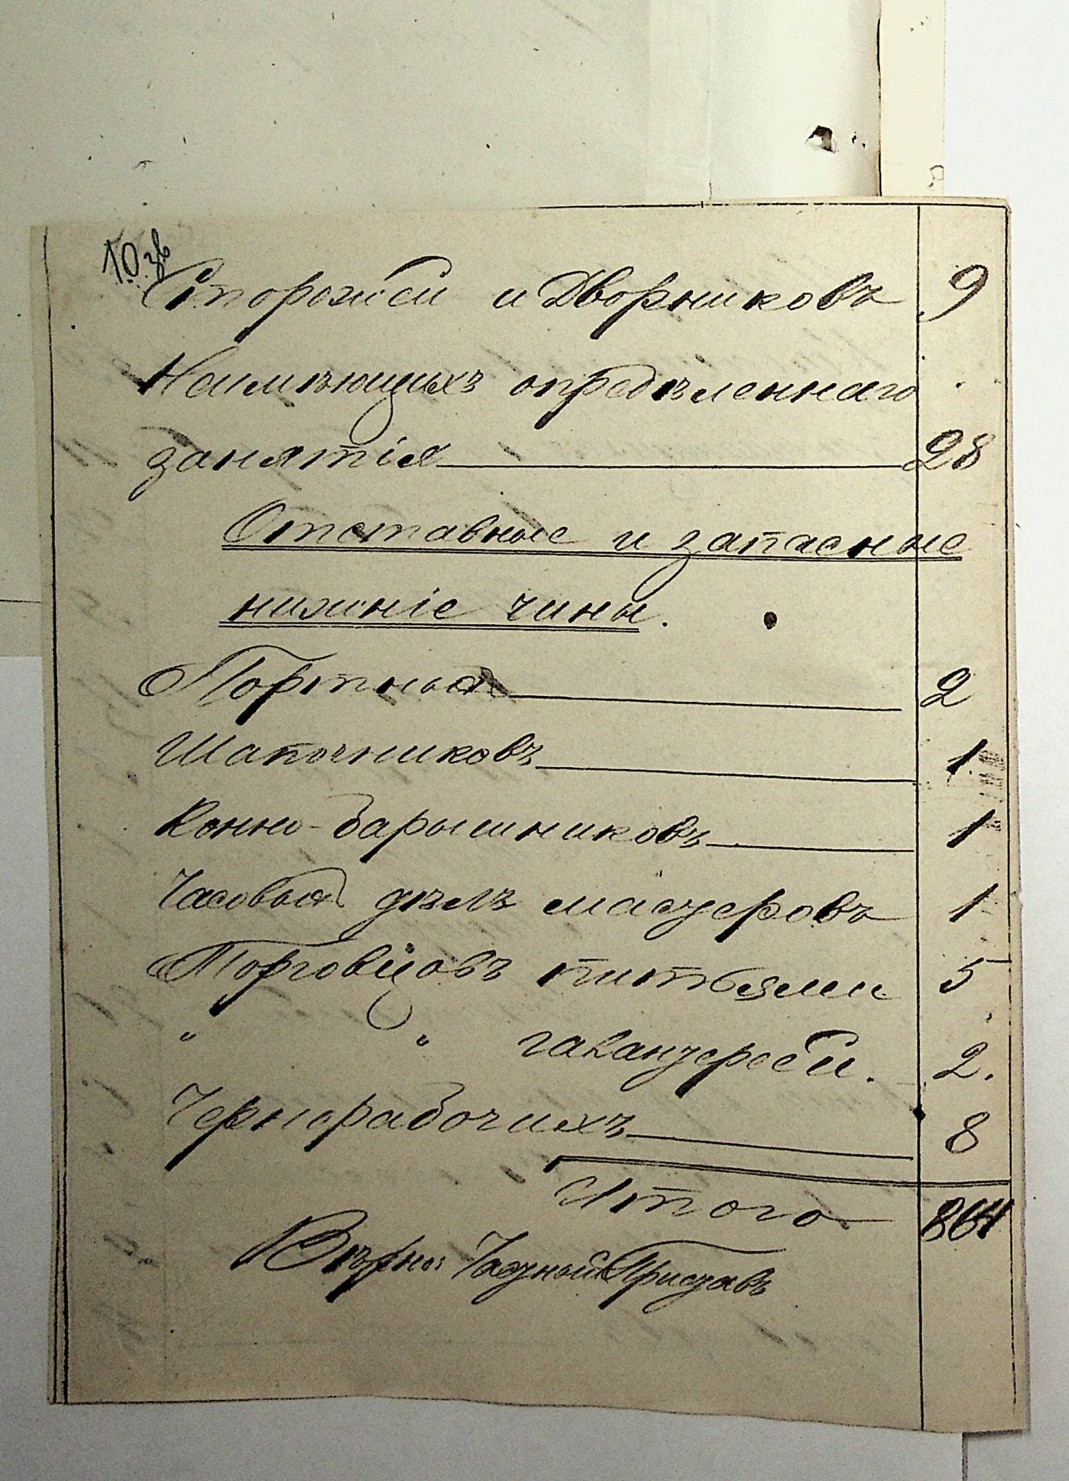 10 зв
Сторожей и Дворниковъ 9
Неимѣющихъ опредѣленнаго
занятія 28
Отставные и запасные
нижніе чины.
Портные 2
Шапочниковъ 1.
Конно-барышниковъ 1
Часовыхъ дѣлъ мастеровъ 1
Торговцовъ питьями 5
" " галантереей. 2.
Чернорабочихъ 8
Итого 864
Вѣрно: Частный Приставъ